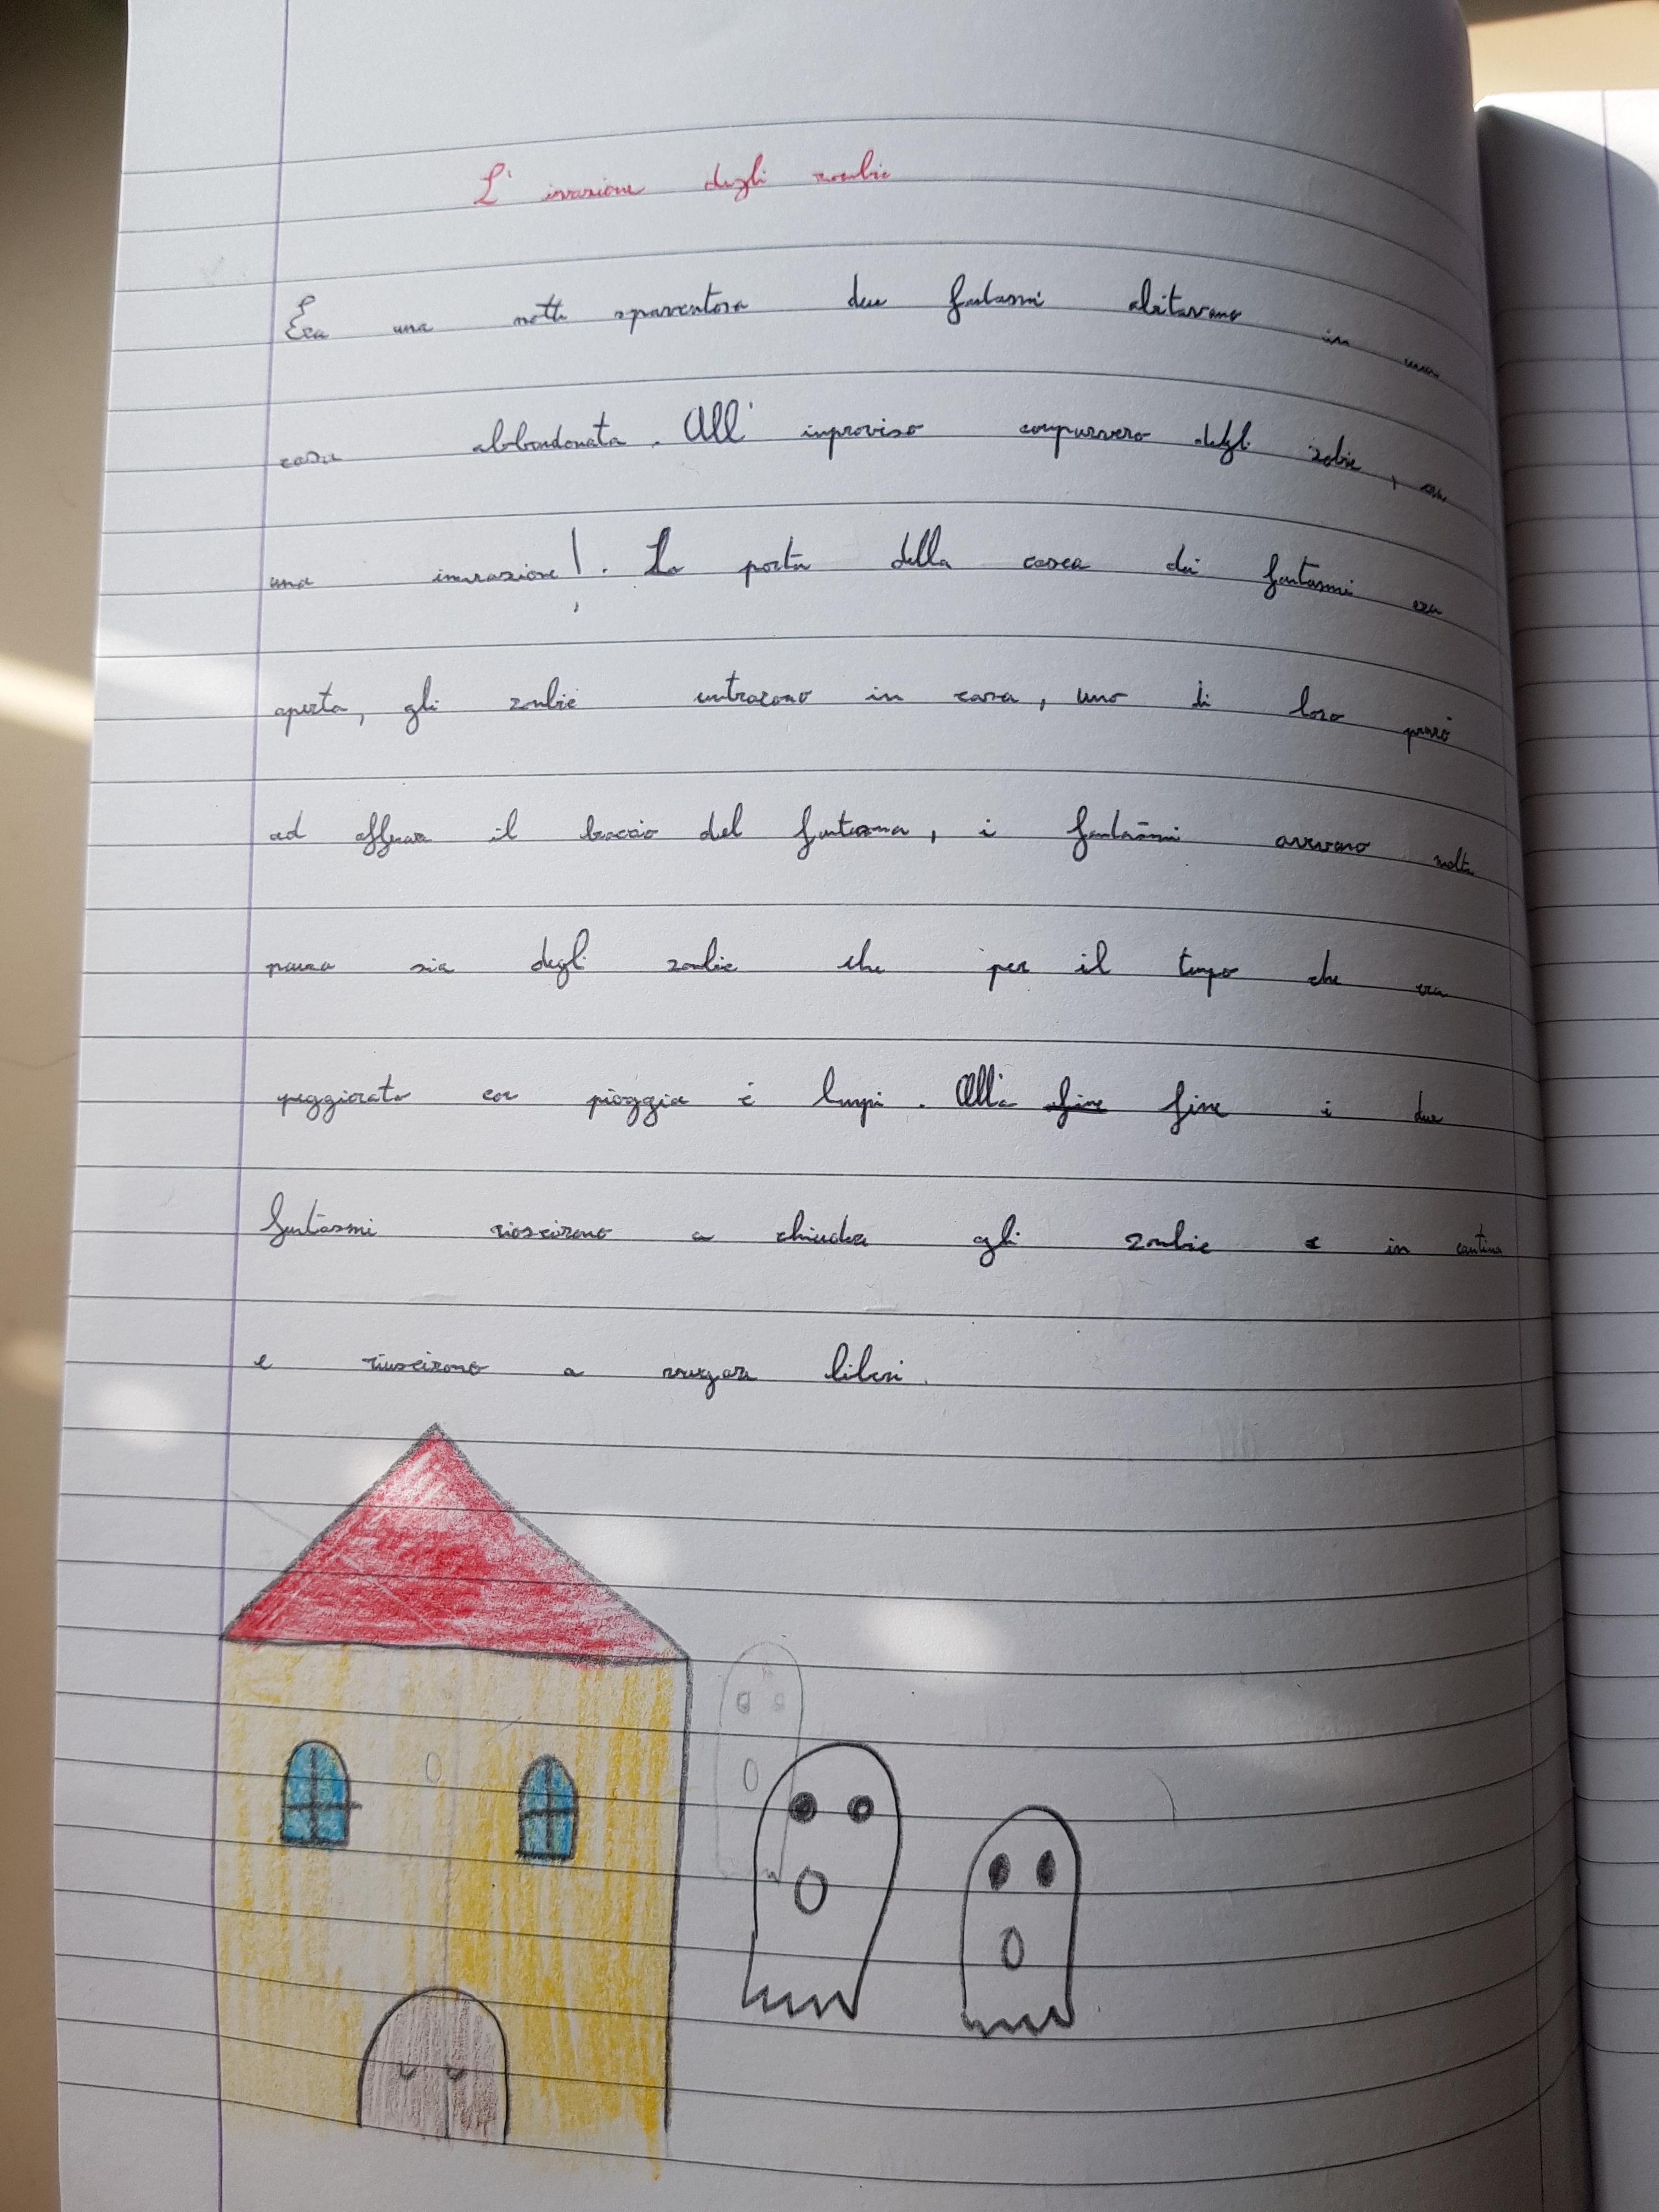 L' invasione degli zombie
Era una notte spaventosa due fantasmi abitavano in una
casa abbandonata. All' improviso compurvero degli zobie, era
una invasione!. La porta della casa dei fantasmi era
aperta, gli zombie entrarono in casa, uno di loro provò
ad afferrare il braccio del fantasma, i fantasmi avevano molta
paura sia degli zombie che per il tempo che era
peggiorato con pioggia e lampi. Alla fine fine i due
fantasmi rioscirono a chiudere gli zombie e in cantina
e riuscirono a vagare liberi.